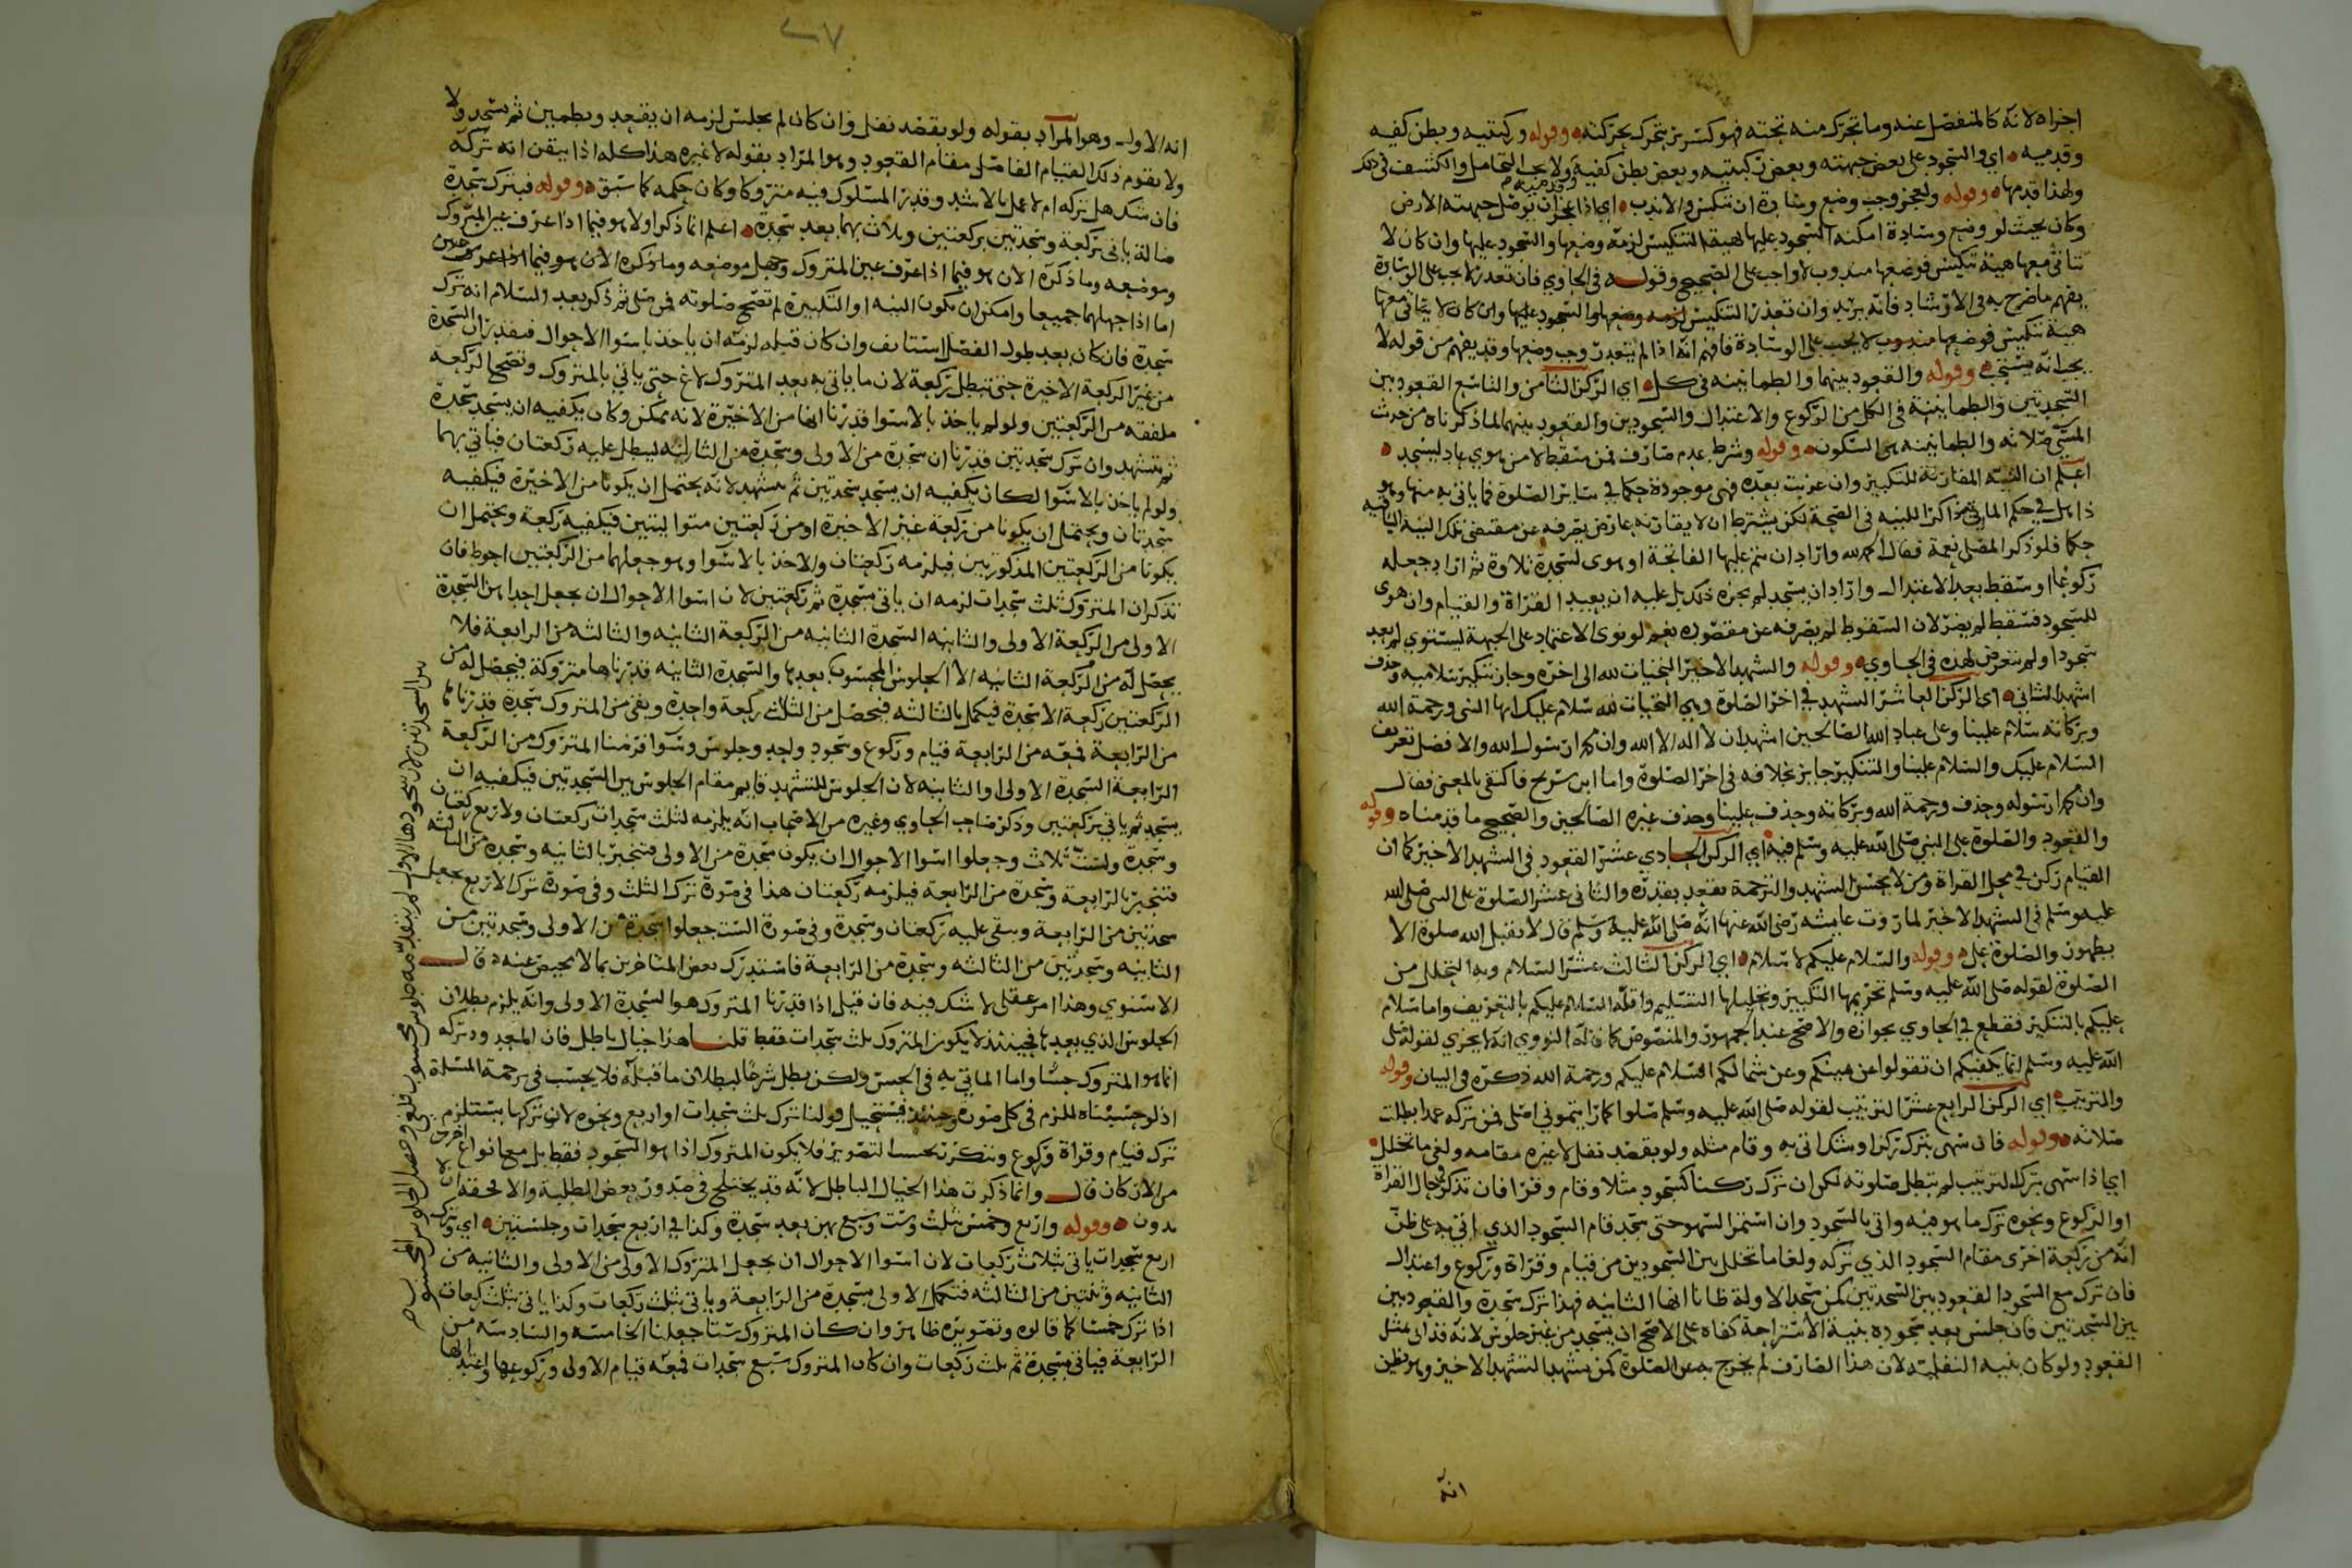 اجزاه لانه كالمنفصل عنه وما تحرك منه تحته فهو كسرير يتحرك بحركته وقوله وركبتيه وبطن كفيه
وقدميه اي والسجود على بعض جبهته وبعض ركبتيه وبعض بطن كفيه ولا يجب التحامل والكشف في ذلك
ولهذا قدمها وقوله ولعجز وجب وضع وسادة ان تنكيس والا ندب اي اذا عجز ان يوصل جبهته الارض
وكان بحيث لو وضع وسادة امكنه السجود عليها لهيئة التنكيس لزمه وضعها والسجود عليها وان كان لا
تتاتى معها هيئة تنكيس فوضعها مندوب لا واجب على الصحيح وقوله في الحاوي فان تعذر لا يجب على الوسادة
يفهم ما صرح به في الارشاد فانه يريد وان تعذر التنكيس لزمه وضعها والسجود عليها وان كان لا يتاتى معها
هيئة تنكيس فوضعها مندوب لا يجب على الوسادة فافهم انه اذا لم يتعذر وجب وضعها وقد يفهم من قوله لا
يجب انه يستحب وقوله والقعود بينهما والطمانينة في كل اي الركن الثامن والتاسع القعود بين
السجدتين والطمانينة في الكل من الركوع والاعتدال والسجودين والقعود بينهما لما ذكرناه من حديث
المسي صلاته والطمانينة هي السكون وقوله وشرط عدم صارف فمن سقط لا من هوي عاد ليسجد
اعلم ان النية المقارنة للتكبير وان عزبت بعده فهي موجودة حكما في ساير الصلوة فما ياتي به منها وهو
ذاهل في حكم الماتي ذاكرا للنية في الصحة لكن يشترط ان لا يقارنه عارض يصرفه عن مقتضى تلك النية الباقية
حكما فلو ذكر المصلي نعمة فقال الحمد لله واراد ان يتم عليها الفاتحة او هوى لسجدة تلاوة ثم اراد جعله
ركوعا او سقط بعد الاعتدال واراد ان يسجد لم يجزه ذلك بل عليه ان يعيد القراة والقيام وان هوى
للسجود فسقط لم يضر لان السقوط لم يصرفه عن مقصوده نعم لو نوى الاعتماد على الجبهة ليستوي لم يعد
سجودا ولم يتعرض لهذه في الحاوي وقوله والتشهد الاخير التحيات لله الى اخره وجاز تنكير سلاميه وحذف
اشهد الثاني اي الركن العاشر التشهد في اخر الصلوة وهي التحيات لله سلام عليك ايها النبي ورحمة الله
وبركاته سلام علينا وعلى عباد الله الصالحين اشهد ان لا اله الا الله وان محمدا رسول الله والافضل تعريف
السلام عليك والسلام علينا والتنكير جايز بخلافه في اخر الصلوة واما ابن سريج فاكتفى بالمعنى فقال
وان محمدا رسوله وحذف ورحمة الله وبركاته وحذف علينا وحذف غيره الصالحين والصحيح ما قدمناه وقوله
والقعود والصلوة على النبي صلى الله عليه وسلم فيه اي الركن الحادي عشر القعود في التشهد الاخير كما ان
القيام ركن في محل القراة ومن لا يحسن التشهد والترجمة يقعد بقدره والثاني عشر الصلوة على النبي صلى الله
عليه وسلم في التشهد الاخير لما روت عايشه رضي الله عنها انه صلى الله عليه وسلم قال لا يقبل الله صلوة الا
بطهور والصلوة علي وقوله والسلام عليكم لا سلام اي الركن الثالث عشر السلام وبه التحلل من
الصلوة لقوله صلى الله عليه وسلم تحريمها التكبير وتحليلها التسليم واقله السلام عليكم بالتعريف واما سلام
عليكم بالتنكير فقطع في الحاوي بجوازه والاصح عند الجمهور والمنصوص كما قاله النووي انه لا يجزي لقوله صلى
الله عليه وسلم انما يكفيكم ان تقولوا عن يمينكم وعن شمالكم السلام عليكم ورحمة الله ذكره في البيان وقوله
والترتيب اي الركن الرابع عشر الترتيب لقوله صلى الله عليه وسلم صلوا كما رايتموني اصلي فمن تركه عمدا بطلت
صلاته وقوله فان سهى بترك ركن او شك اتى به وقام مثله ولو بقصد نفل لا غيره مقامه ولغى ما تخلل
اي اذا سهى بترك الترتيب لم تبطل صلوته لكن ان ترك ركنا كسجود مثلا وقام وقرا فان تذكر في حال القراة
او الركوع ونحوه ترك ما هو فيه واتى بالسجود وان استمر السهو حتى سجد قام السجود الذي اتى به على ظن
انه من ركعة اخرى مقام السجود الذي تركه ولغا ما تخلل بين السجودين من قيام وقراة وركوع واعتدال
فان ترك مع السجود القعود بين السجدتين كمن سجد الاولة ظانا انها الثانيه فهذا ترك سجدة والقعود بين
بين السجدتين فان جلس بعد سجوده بنية الاستراحة كفاه على الاصح ان يسجد من غير جلوس لانه قد اتى بمثل
القعود ولو كان بنيه النفليه لان هذا الصارف لم يخرج به عن الصلوة كمن تشهد التشهد الاخير وهو يظن
انه
انه الاول وهو المراد بقوله ولو بقصد نفل وان كان لم يجلس لزمه ان يقعد ويطمين ثم يسجد ولا
ولا يقوم ذلك القيام الفاصل مقام القعود وهو المراد بقوله لا غيره هذا كله اذا تيقن انه تركه
فان شك هل تركه ام لا عمل بالاشد وقدر المسلوك فيه متروكا وكان حكمه كما سبق وقوله فبترك سجدة
ضالة ياتي بركعة وسجدتين بركعتين وثلاث بهما بعد سجدة اعلم انما ذكر اولا هو فيما اذا عرف عين المتروك
وموضعه وما ذكره الان هو فيما اذا عرف عين المتروك وجهل موضعه
اما اذا جهلهما جميعا وامكن ان يكون النيه او التكبيرة لم تصح صلوته فمن صلى ثم ذكر بعد السلام انه ترك
سجدة فان كان بعد طول الفصل استانف وان كان قبله لزمه ان ياخذ باسوا الاحوال فيقدر ان السجدة
من غير الركعة الاخيرة حتى تبطل ركعة لان ما ياتي به بعد المتروك لاغ حتى ياتي بالمتروك وتصح الركعه
ملفقه من الركعتين ولو لم ياخذ بالاسوا قدرنا انها من الاخيرة لانه ممكن وكان يكفيه ان يسجد سجدة
ثم يتشهد وان ترك سجدتين قدرنا ان سجدة من الاولى وسجدة من الثالثه ليبطل عليه ركعتان فياتي بهما
ولو لم ياخذ بالاسوا لكان يكفيه ان يسجد سجدتين ثم يتشهد لانه يحتمل ان يكونا من الاخيرة فيكفيه
سجدتان ويحتمل ان يكونا من ركعة غير الاخيرة او من ركعتين متواليتين فيكفيه ركعة ويحتمل ان
يكونا من الركعتين المذكورتين فيلزمه ركعتان والاخذ بالاسوا وهو جعلهما من الركعتين احوط فان
تذكر ان المتروك ثلث سجدات لزمه ان ياتي بسجدة ثم ركعتين لان اسوا الاحوال ان يجعل احداهن السجدة
الاولى من الركعة الاولى والثانيه السجدة الثانيه من الركعة الثانيه والثالثه من الرابعة فلا
يحصل له من الركعة الثانيه الا الجلوس المحسوب بعدها والسجدة الثانيه قدرناها متروكة فيحصل له من
الركعتين ركعة الا سجدة فيكمل بالثالثه فيحصل من الثلاث ركعة واحدة وبقي من المتروك سجدة قدرناها
من الرابعة فمعه من الرابعة قيام وركوع وسجود واحد وجلوس وسوا فرضنا المتروك من الركعة
الرابعة السجدة الاولى او الثانيه لان الجلوس للتشهد قايم مقام الجلوس بين السجدتين فيكفيه ان
يسجد ثم ياتي بركعتين وذكر صاحب الحاوي وغيره من الاصحاب انه يلزمه لثلث سجدات ركعتان ولاربع ركعتان
وسجدة ولست ثلاث وجعلوا اسوا الاحوال ان يكون سجدة من الاولى فتنجبر بالثانيه وسجدة من الثالثه
فتنجبر بالرابعة وسجدة من الرابعة فيلزمه ركعتان هذا في صورة ترك الثلث وفي صورة ترك الاربع يجعل
سجدتين من الرابعة ويبقى عليه ركعتان وسجدة وفي صورة الست جعلوا سجدة من الاولى وسجدتين من
الثانيه وسجدتين من الثالثه وسجدة من الرابعة فاستدرك بعض المتاخرين بما لا محيص عنه قال
الاسنوي وهذا امر عقلي لا شك فيه فان قيل اذا قدرنا المتروك هو السجدة الاولى وانه يلزم بطلان
الجلوس الذي بعدها فحينئذ لا يكون المتروك ثلث سجدات فقط قلنا هذا خيال باطل فان المعدود تركه
انما هو المتروك حسا واما الماتي به في الحس ولكن بطل شرعا لبطلان ما قبله فلا يحسب في ترجمة المسئلة
اذ لو حسبناه للزم في كل صورة وحينئذ فيستحيل قولنا ترك ثلث سجدات او اربع ونحوه لان تركها يستلزم
ترك قيام وقراة وركوع فلا يكون المتروك اذا هو السجود فقط بل معها انواع اخرى
من الاركان قال وانما ذكرت هذا الخيال الباطل لانه قد يختلج في صدور بعض الطلبة والا فحقه ان لا
يدون وقوله واربع وخمس بثلث وست وسبع بهن بعد سجدة وكذا في اربع سجدات وجلستين اي وترك
اربع سجدات ياتي بثلاث ركعات لان اسوا الاحوال ان يجعل المتروك الاولى من الاولى والثانيه من
الثانيه وثنتين من الثالثه فتكمل الاولى بسجدة من الرابعة وياتي بثلث ركعات وكذا ياتي بثلث ركعات
اذا ترك خمسا كما قالوه وتصويره ظاهر وان كان المتروك ستا جعلنا الخامسه والسادسه من
الرابعة فياتي بسجدة ثم ثلث ركعات وان كان المتروك سبع سجدات فمعه قيام الاولى وركوعها واعتدالها